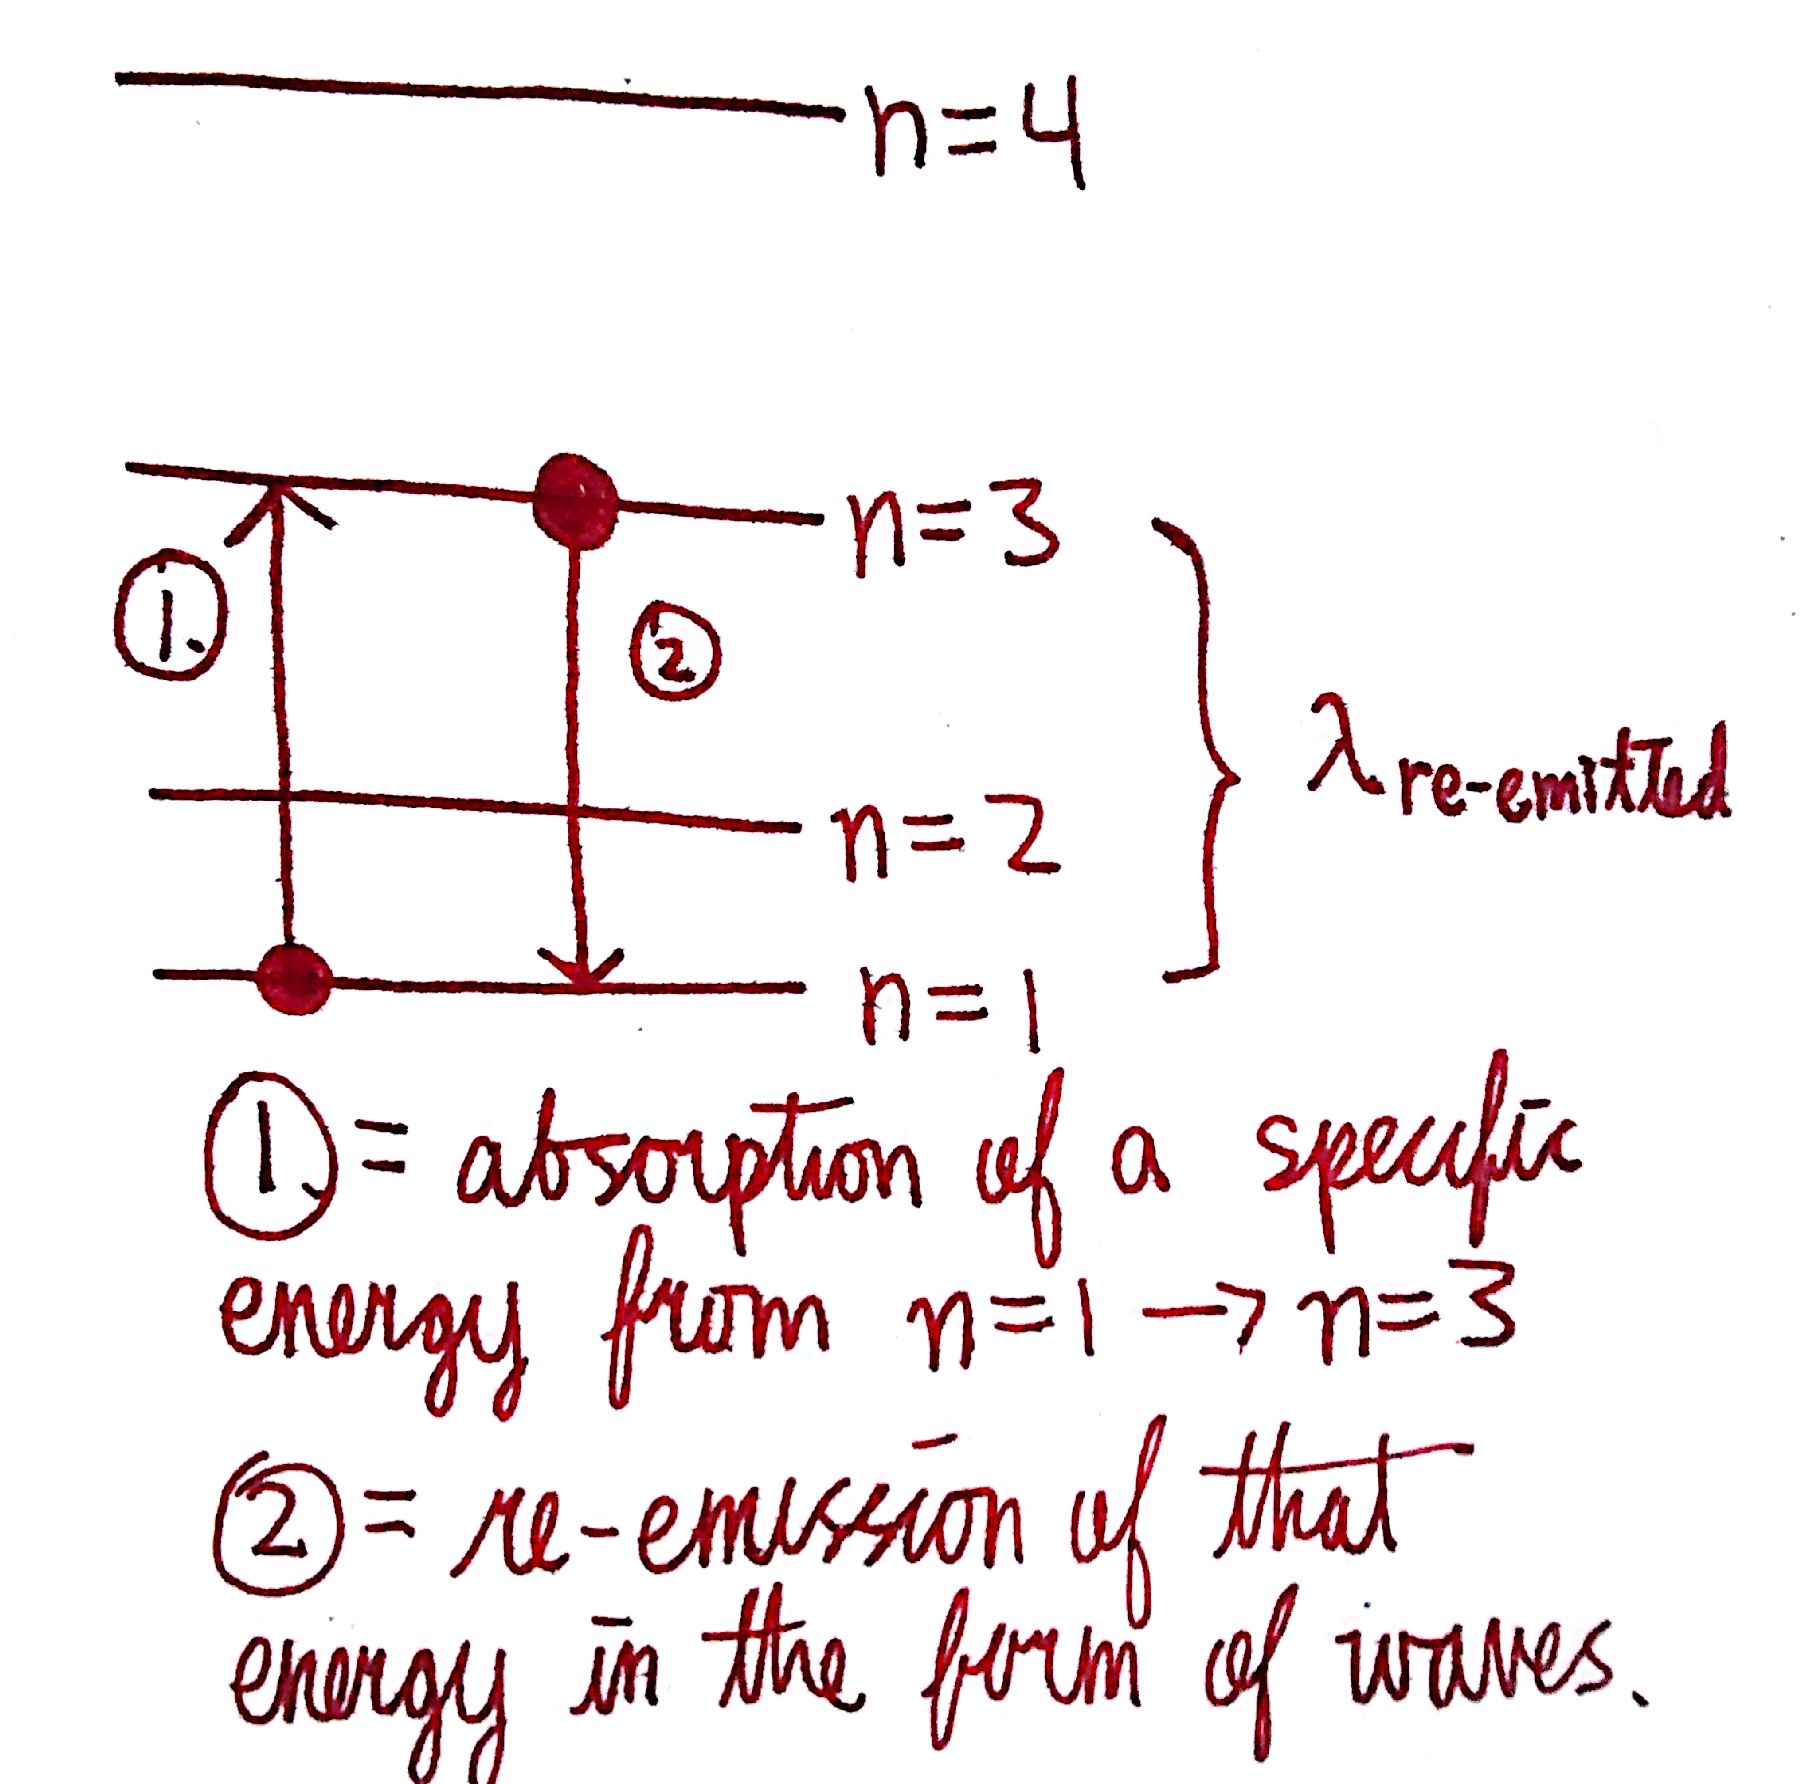 n=4
n=3
1.
2
λ re-emitted
n=2
n=1
1. = absorption of a specific
energy from n=1 → n=3
2 = re-emission of that
energy in the form of waves.